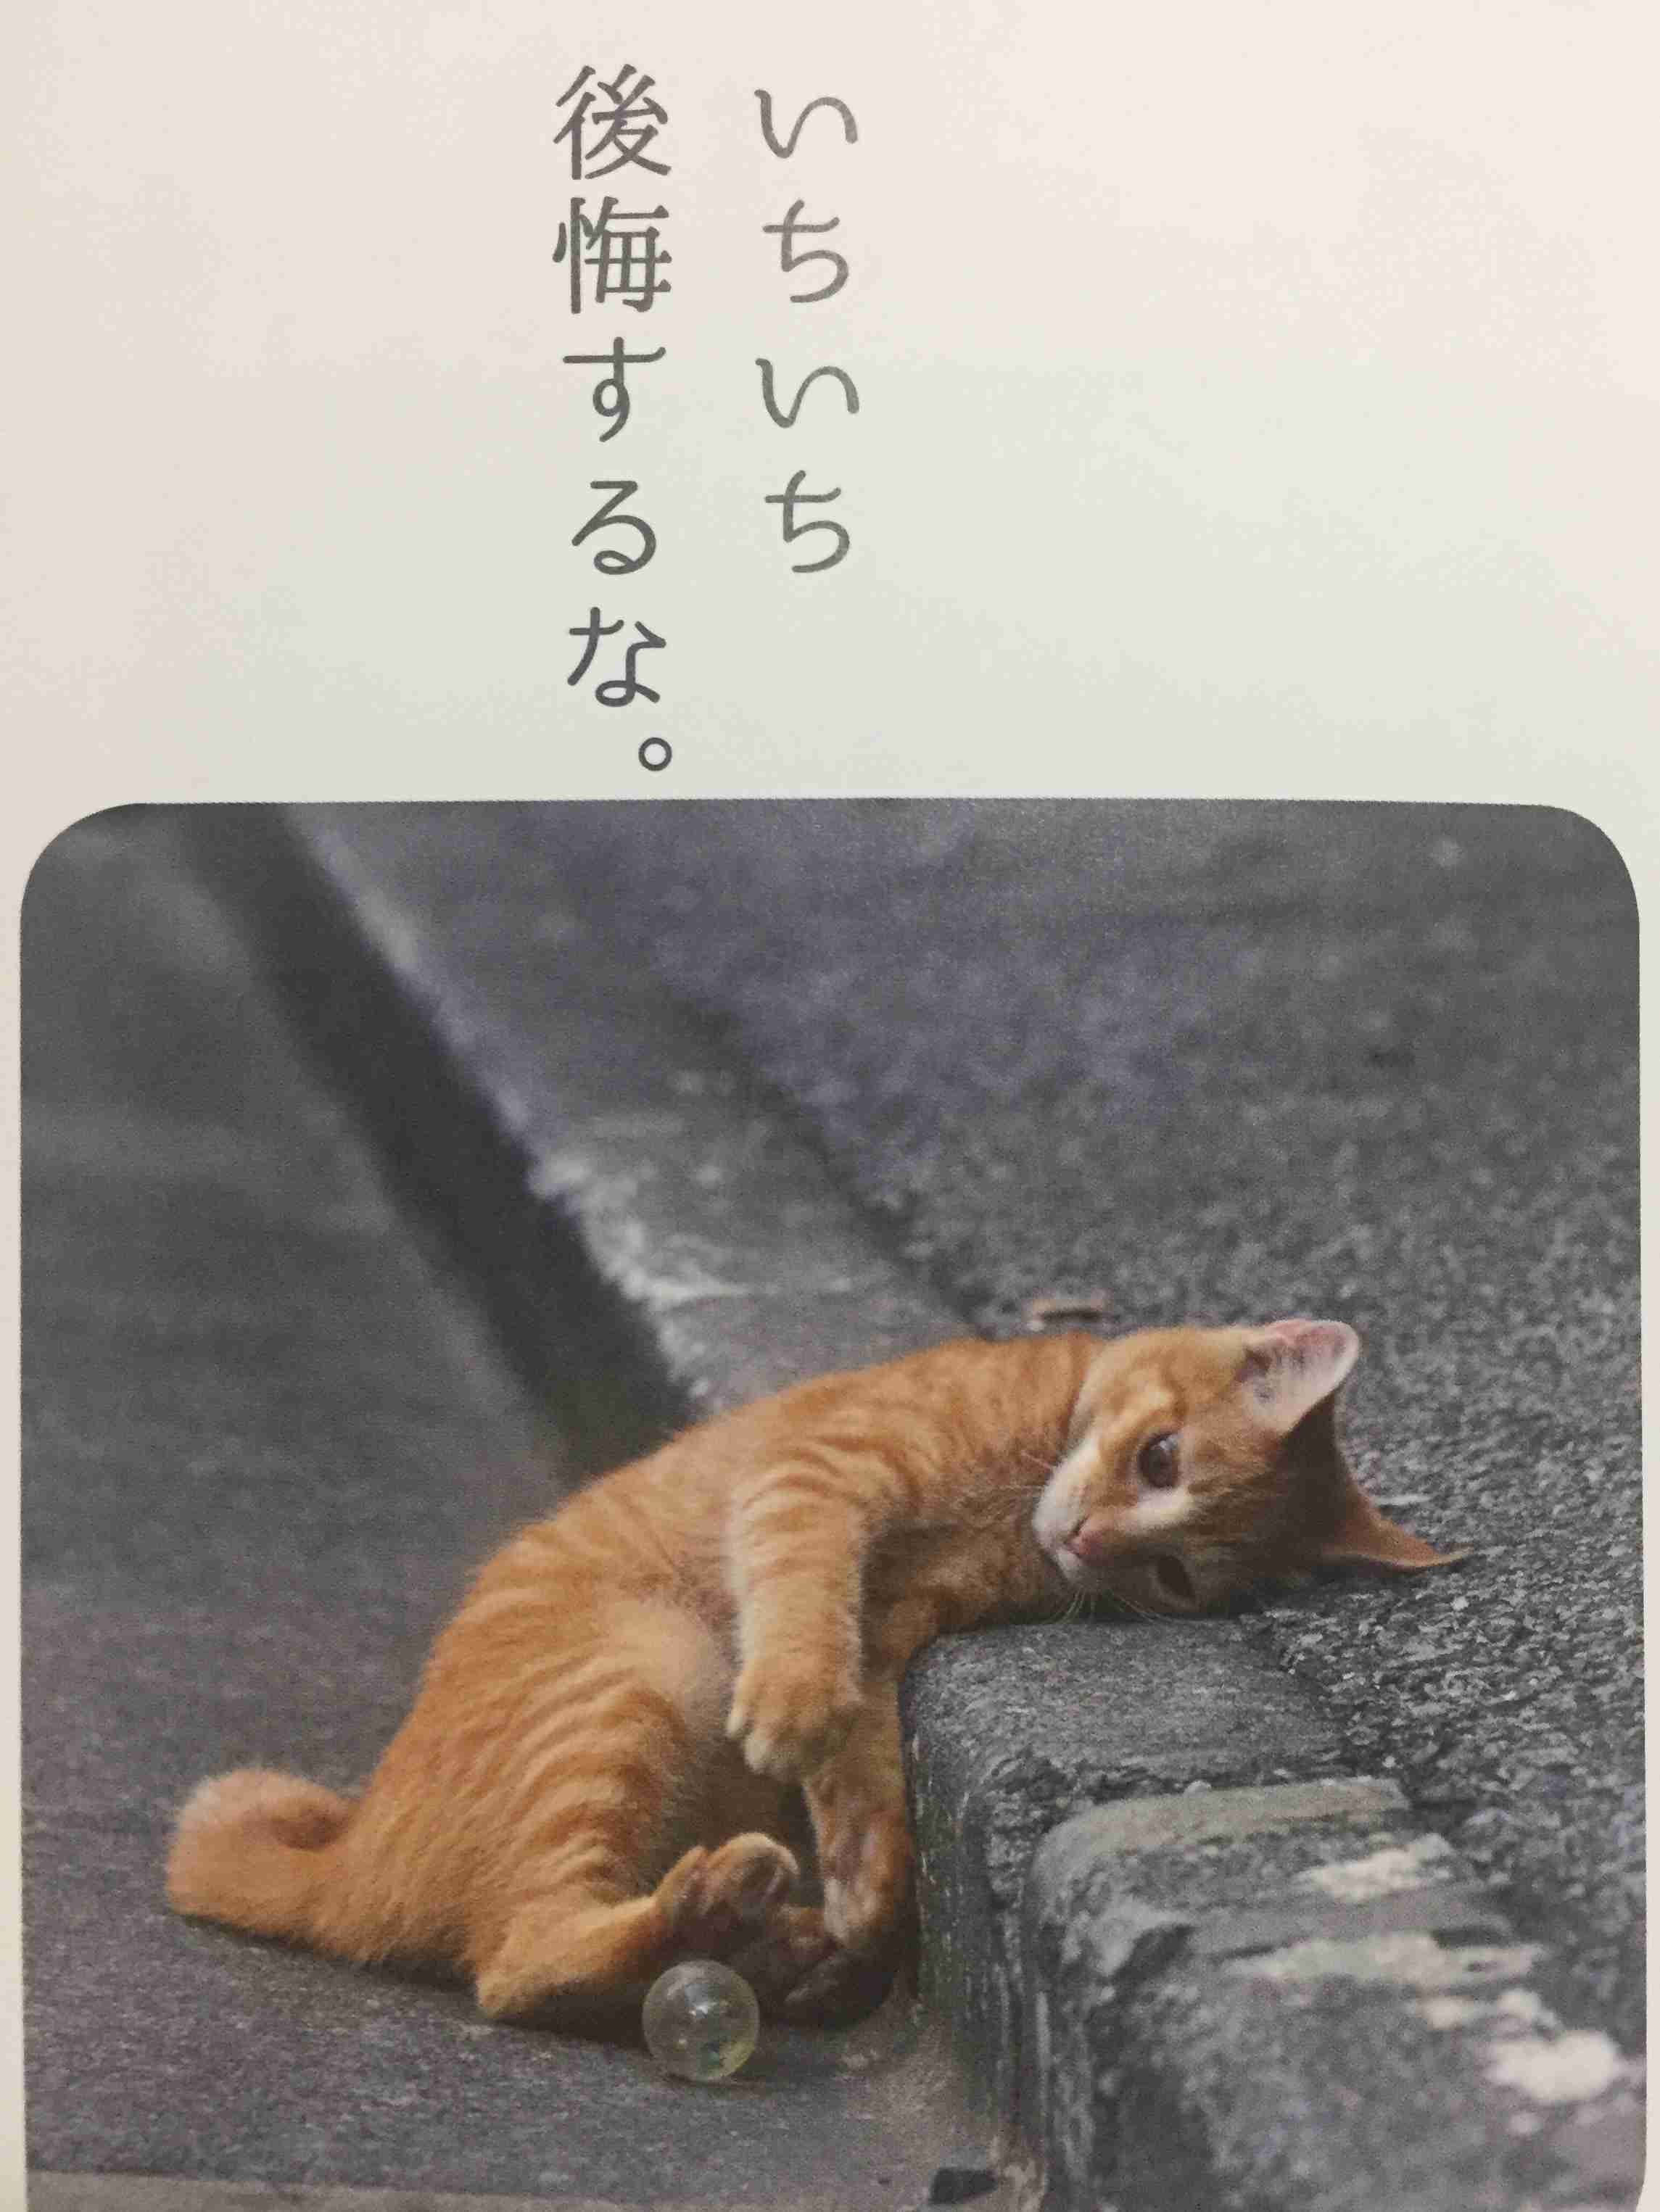 いちいち
後悔するな。